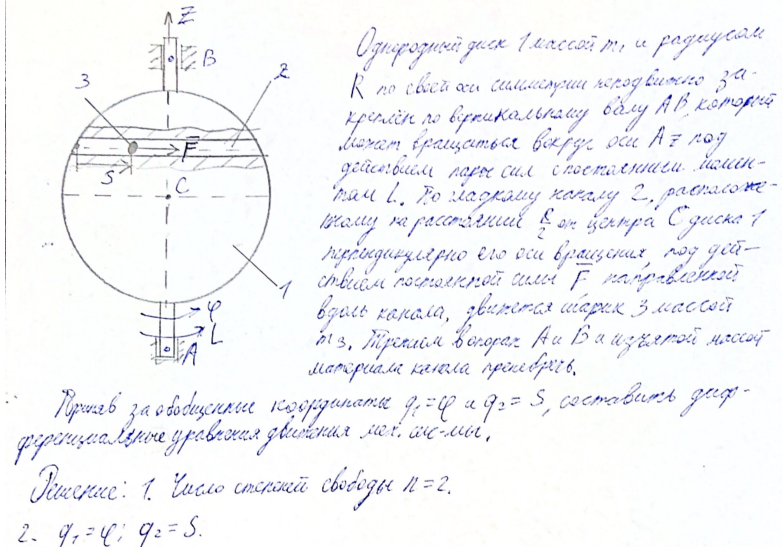 Z
B
3
2
F
S
C
1
φ
L
A
Однородный диск 1 массой m₁ и радиусом
R по своей оси симметрии неподвижно за-
креплён по вертикальному валу AB, который
может вращаться вокруг оси Az под
действием пары сил с постоянным момен-
том L. По гладкому каналу 2, расположен-
ному на расстоянии R/2 от центра C диска 1
перпендикулярно его оси вращения, под дей-
ствием постоянной силы F направленной
вдоль канала, движется шарик 3 массой
m₃. Трением в опорах A и B и изъятой массой
материала канала пренебречь.
Приняв за обобщенные координаты q₁=φ и q₂=S, составить диф-
ференциальные уравнения движения мех. сис-мы.
Решение: 1. Число степеней свободы n=2.
2. q₁=φ; q₂=S.